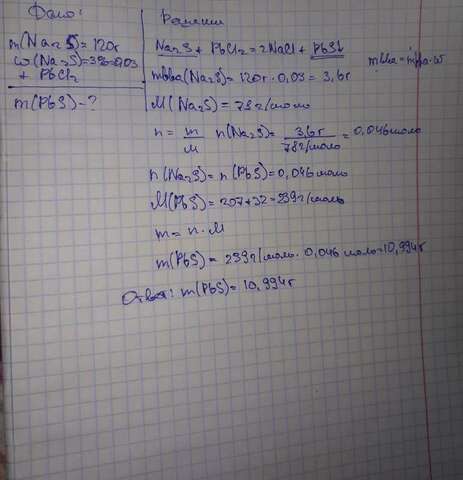 Дано:
m(Na₂S)=120г
ω(Na₂S)=3%=0,03
+ PbCl₂
m(PbS)-?
Решение
Na₂S + PbCl₂ = 2NaCl + PbS↓
mв-ва = mр-ра·ω
mв-ва(Na₂S)=120г·0,03=3,6г
M(Na₂S)=78г/моль
n = m/M n(Na₂S)= 3,6г/78г/моль = 0,046моль
n(Na₂S)=n(PbS)=0,046моль
M(PbS)=207+32=239г/моль
m = n·M
m(PbS)=239г/моль·0,046моль=10,994г
Ответ: m(PbS)=10,994г